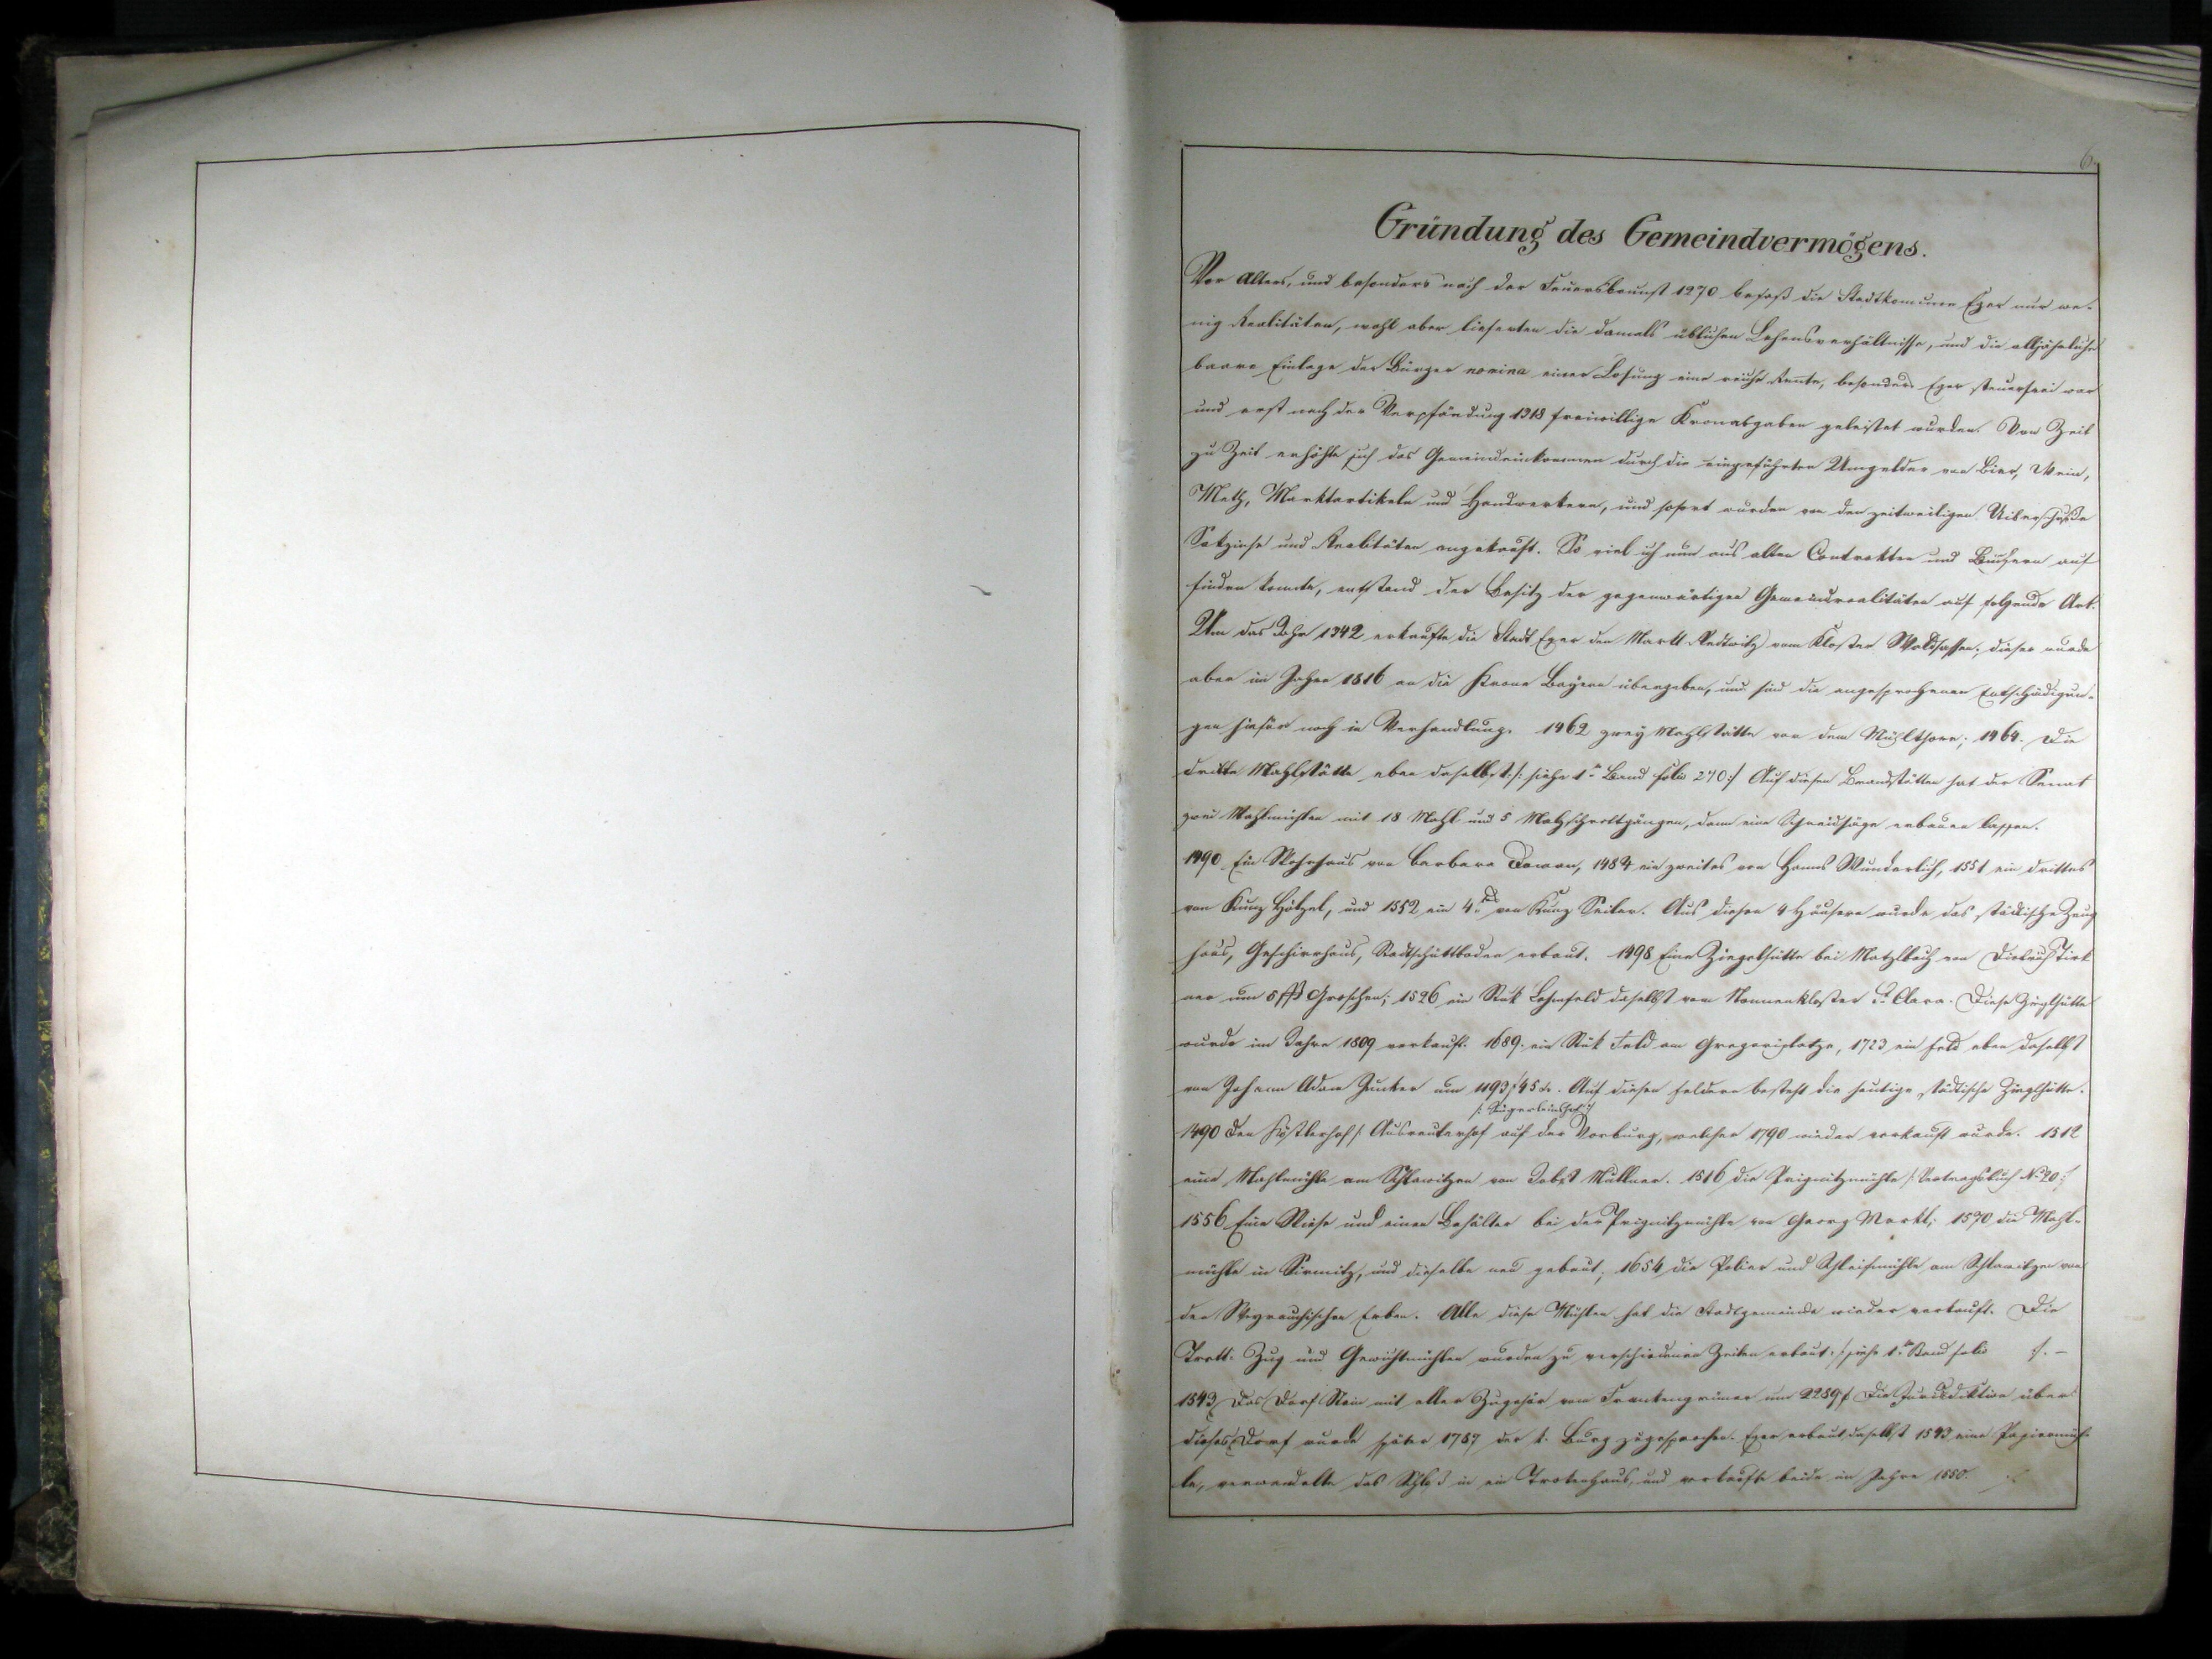 6.
Gründung des Gemeindvermögens.
Vor Alters, und besonders nach der Feuersbrunst 1270 besaß die Stadtkomune Eger nur we-
nig Realitäten, wohl aber lieferten die damals üblichen Lehensverhältnisse, und die alljährliche
baare Einlage der Bürger nomine einer Losung eine reiche Rente, besonders Eger steuerfrei war
und erst nach der Verpfändung 1318 freiwillige Kronabgaben geleistet wurden. Von Zeit
zu Zeit erhöhte sich das Gemeindeinkommen durch die eingeführten Umgelder von Bier, Wein,
Meth, Marktartikeln und Handwerkern, und sofort wurden von den zeitweiligen Uiberschüße
Sakzinse und Realitäten angekauft. So viel ich nun aus alten Contrakten und Büchern auf
finden konnte, entstand der Besitz der gegenwärtigen Gemeindrealitäten auf folgende Art.
Um das Jahr 1342 erkaufte die Stadt Eger den Markt Redwitz vom Kloster Waldsassen; dieser wurde
aber im Jahre 1816 an die Krone Bayern übergeben, und sind die angesprochenen Entschädigun-
gen hiefür noch in Verhandlung. 1462 zwey Mahlstätte vor dem Mühlthore; 1464. Die
dritte Mahlstätte eben daselbst /: siehe 1ten Band folio 270 :/ Auf diesen Brandstätten hat der Senat
zwei Mahlmühlen mit 18 Mahl und 5 Malzschrottgängen, dann eine Schneidsäge erbauen lassen.
1490 Ein Wohnhaus von Barbara 1484 ein zweites von Hanns Wunderlich, 1551 ein drittes
von Kunz Hötzel, und 1552 ein 4tes von Kunz Seiler. Aus diesen 4 Häusern wurde das städtische Zeug
haus, Geschirrhaus, Stadtschüttboden erbaut. 1498 Eine Ziegelhütte bei Matzlbach von
um Groschen; 1526 ein Stük Lehenfeld daselbst vom Nonnenkloster St. Clara. Diese Zieglhütte
wurde im Jahre 1809 verkauft. 1689. ein Stük Feld am 1723 ein Feld eben daselbst
von Johann Adam Junker um 1193 f 45 xr. Auf diesen Feldern besteht die heutige städtische Zieglhütte.
1490 den /: Ausreuterhof auf der Vorburg, welcher 1790 wieder verkauft wurde. 1512
eine Mahlmühle am von Jobst Müllner. 1516 die Prignitzmühle /: Vertragsbuch N. 20 :/
1556 Eine Wiese und einen Behälter bei der Prignitzmühle von Georg Markl; 1570 die Mahl-
mühle in Sirmitz, und dieselbe neu gebaut; 1654 die Polier und Schleifmühle am von
den Erben. Alle diese Mühlen hat die Stadtgemeinde wieder verkauft. Die
Zug und Gewichtmühlen wurden zu verschiedenen Zeiten erbaut; /: siehe 1ten Band folio :/. –
1543 Das Dorf Stein mit aller Zugehör vom Frankengrüner um 2289 f Die Jurisdiktion über
dieses Dorf wurde später 1787 der k. Burg zugesprochen. Eger erbaut daselbst 1543 eine Papiermüh-
le, verwandelte das Schloß in ein Trokenhaus, und verkaufte beide im Jahre 1550.